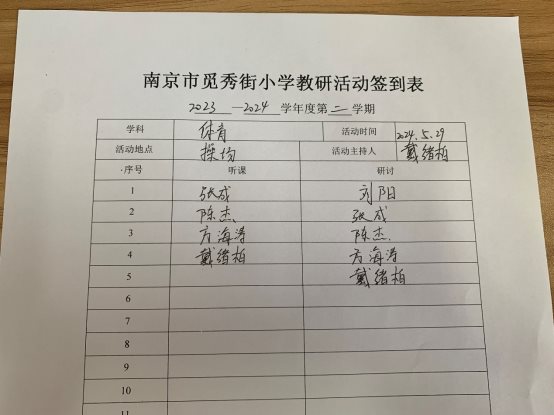 南京市觅秀街小学教研活动签到表
2023—2024 学年度第二学期
学科 体育 活动时间 2024.5.29
活动地点 操场 活动主持人 戴绪柏
序号 听课 研讨
1 张成 刘阳
2 陈杰 张成
3 方海涛 陈杰
4 戴绪柏 方海涛
5 戴绪柏
6
7
8
9
10
11